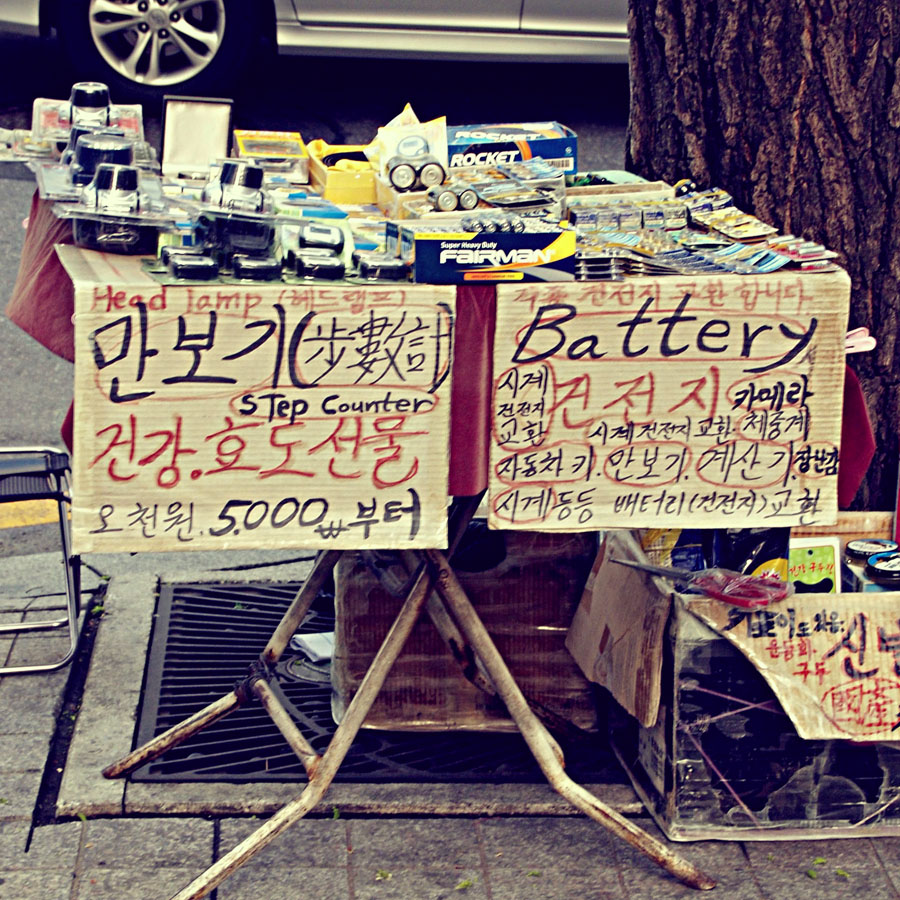 ROCKET
ROCKET
Super Heavy Duty
FAIRMAN
Head lamp (헤드램프)
만보기(步數計)
STep Counter
건강.효도선물
오천원.5.000₩부터
건전지 교환 합니다.
Battery
시계
전전지
교환
건전지
카메라
시계 건전지 교환. 체중계
자동차 키. 만보기. 계산기. 장난감
시계등등 배터리(건전지)교환
구두
國産